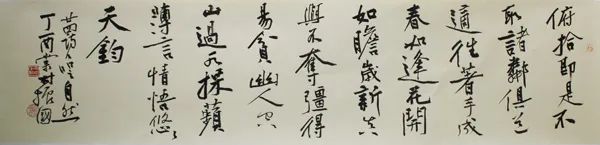 俯拾即是不
取諸鄰俱道
適往著手成
春如逢花開
如瞻歲新真
與不奪彊得
易貧幽人空
山過水採蘋
薄言情悟悠〻
天鈞
自然
丁酉國